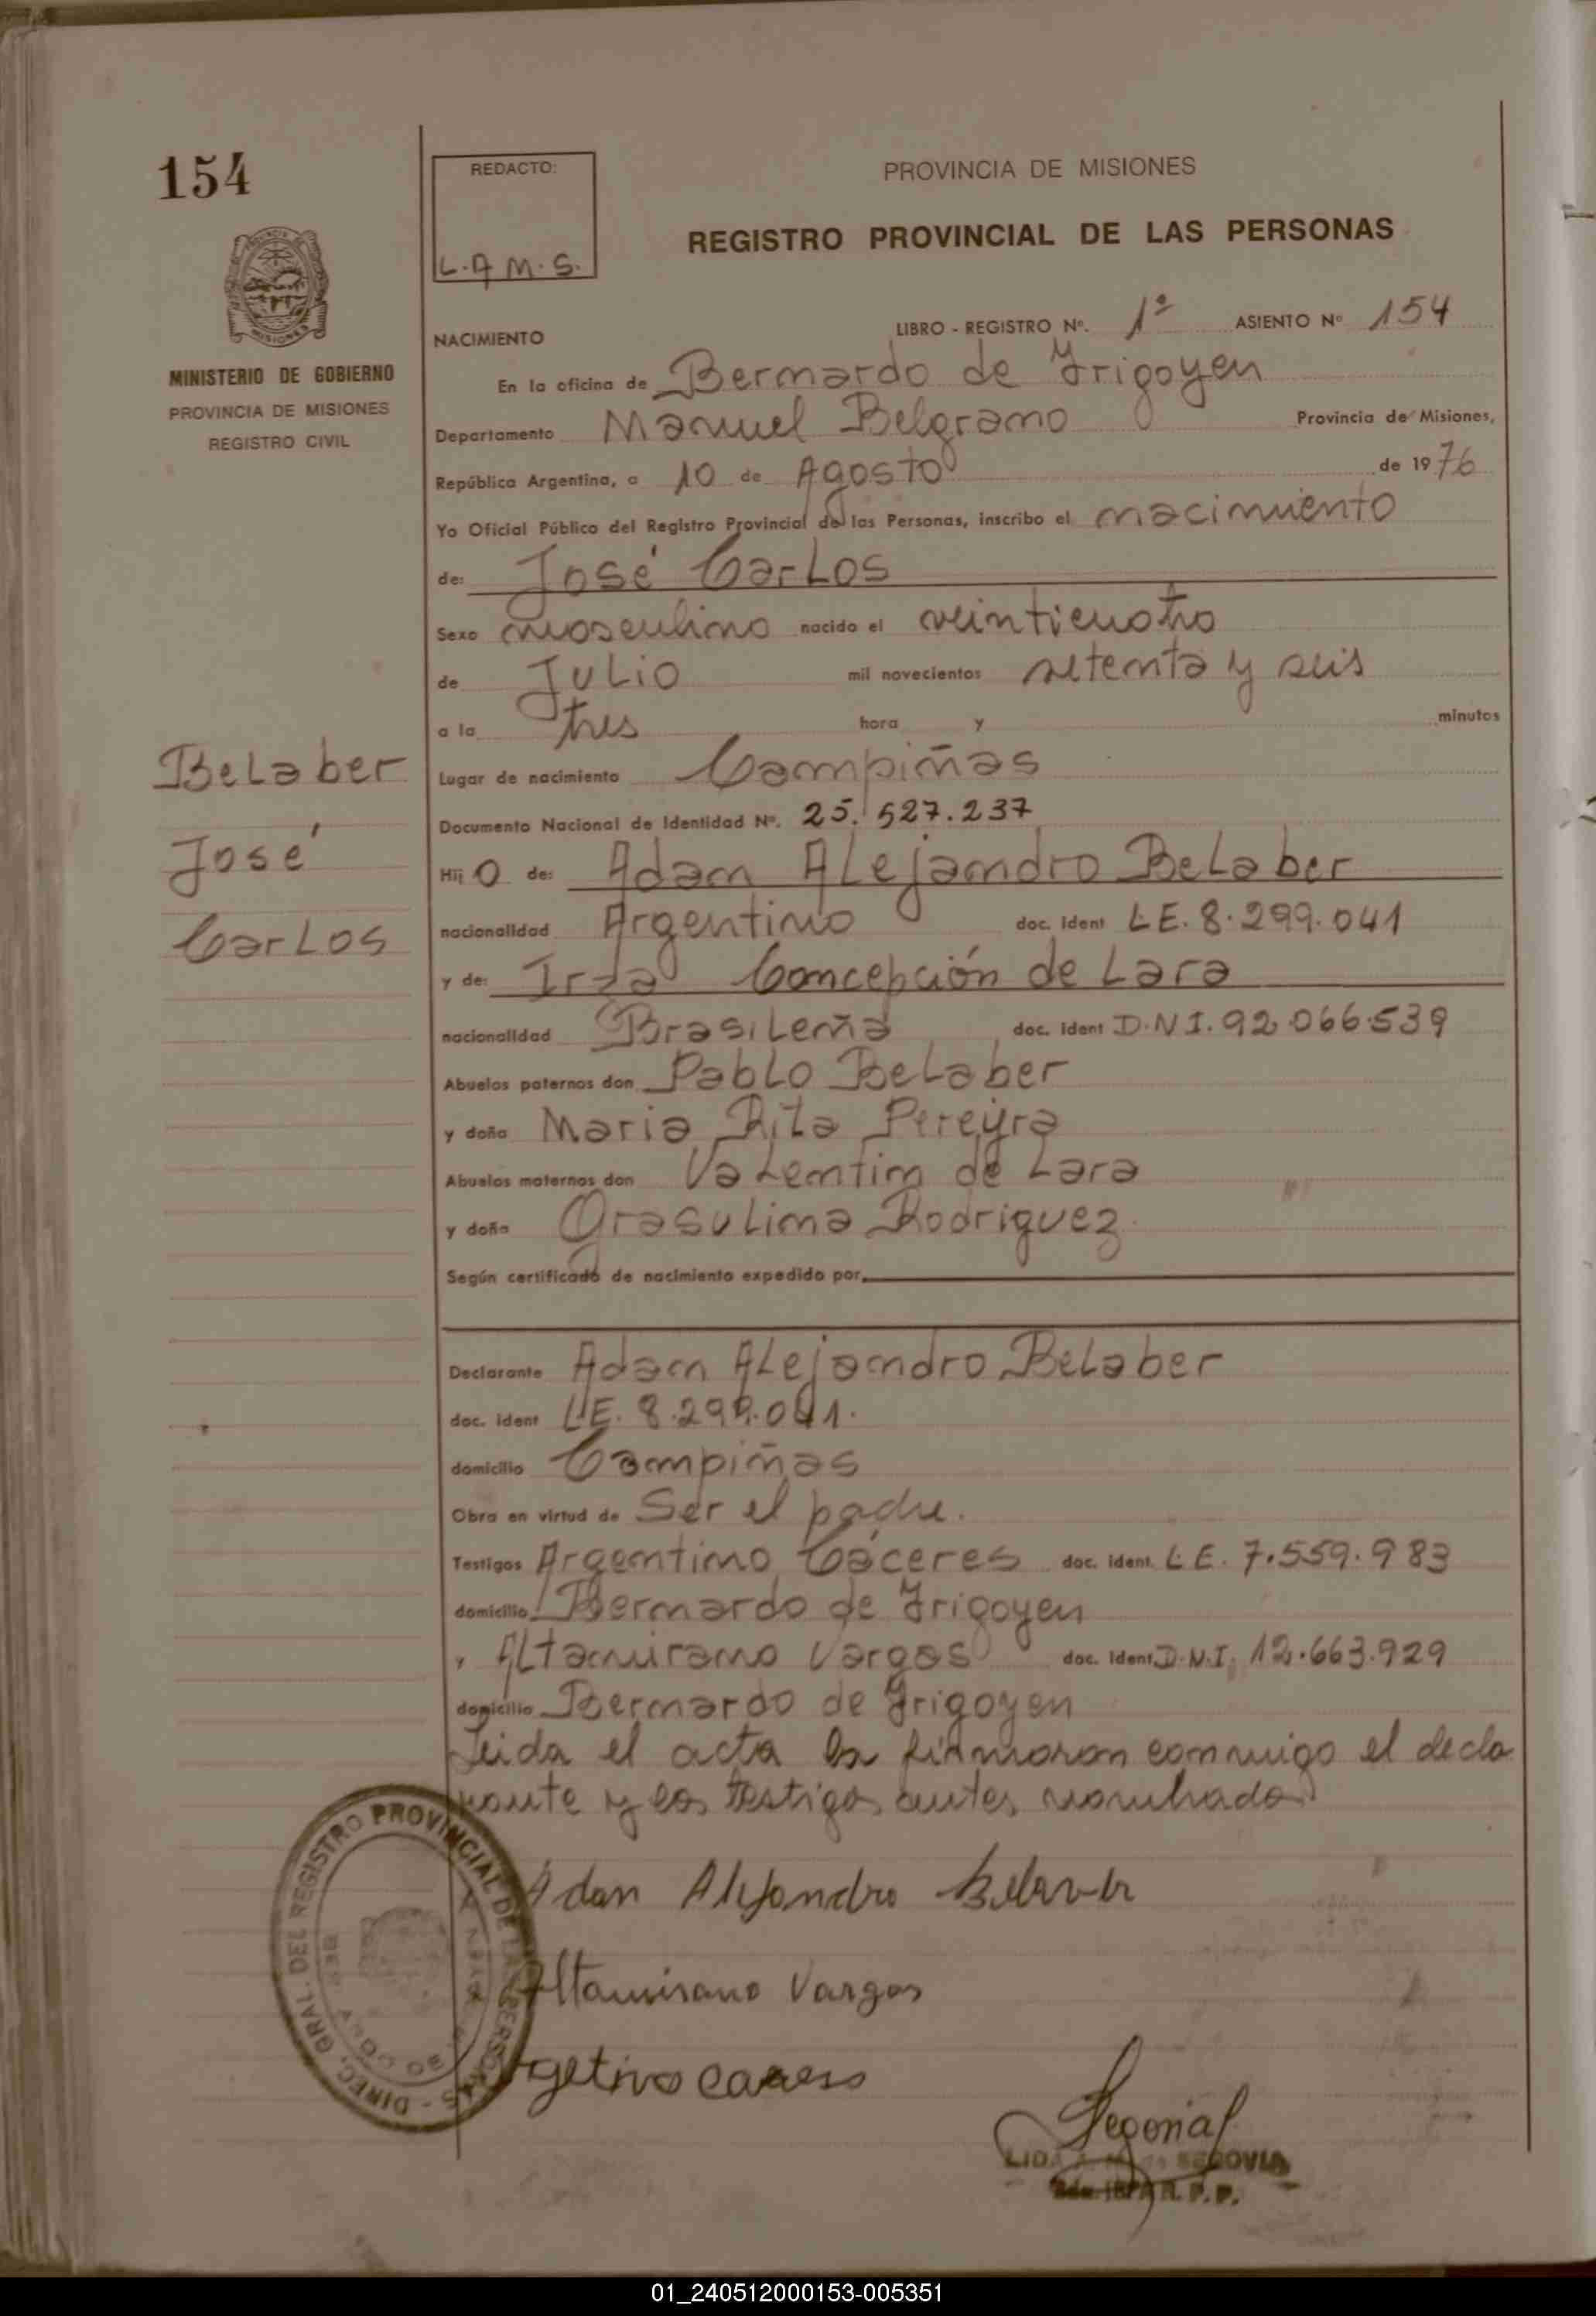 154
REDACTO:
L.A M.S.
PROVINCIA DE MISIONES
REGISTRO PROVINCIAL DE LAS PERSONAS
MINISTERIO DE GOBIERNO
PROVINCIA DE MISIONES
REGISTRO CIVIL
NACIMIENTO
LIBRO - REGISTRO Nº. 1º ASIENTO Nº 154
En la oficina de Bernardo de Irigoyen
Departamento Manuel Belgrano Provincia de Misiones,
República Argentina, a 10 de Agosto de 1976
Yo Oficial Público del Registro Provincial de las Personas, inscribo el nacimiento
de: José Carlos
Sexo masculino nacido el veinticuatro
de Julio mil novecientos setenta y seis
a la tres hora y minutos
Belaber
José
Carlos
Lugar de nacimiento Campiñas
Documento Nacional de Identidad Nº. 25.527.237
Hij O de: Adam Alejandro Belaber
nacionalidad Argentino doc. ident L.E. 8.299.041
y de: Irza Concepción de Lara
nacionalidad Brasileña doc. ident D.N.I. 92.066.539
Abuelos paternos don Pablo Belaber
y doña Maria Rita Pereyra
Abuelos maternos don Valentin de Lara
y doña Grasulina Rodriguez
Según certificado de nacimiento expedido por
Declarante Adam Alejandro Belaber
doc. ident L.E. 8.299.041.
domicilio Campiñas
Obra en virtud de Ser el padre.
Testigos Argentino Cáceres doc. ident. L.E. 7.559.983
domicilio Bernardo de Irigoyen
y Altamirano Vargas doc. ident D.N.I. 12.663.929
domicilio Bernardo de Irigoyen
Leida el acta la firmaron conmigo el decla
rante y los testigos antes nombrados
DIREC. GRAL. DEL REGISTRO PROVINCIAL DE LAS PERSONAS -
Adan Alejandro Belaver
Altamirano Vargas
SEGOVIA
R.P.P.
01_240512000153-005351